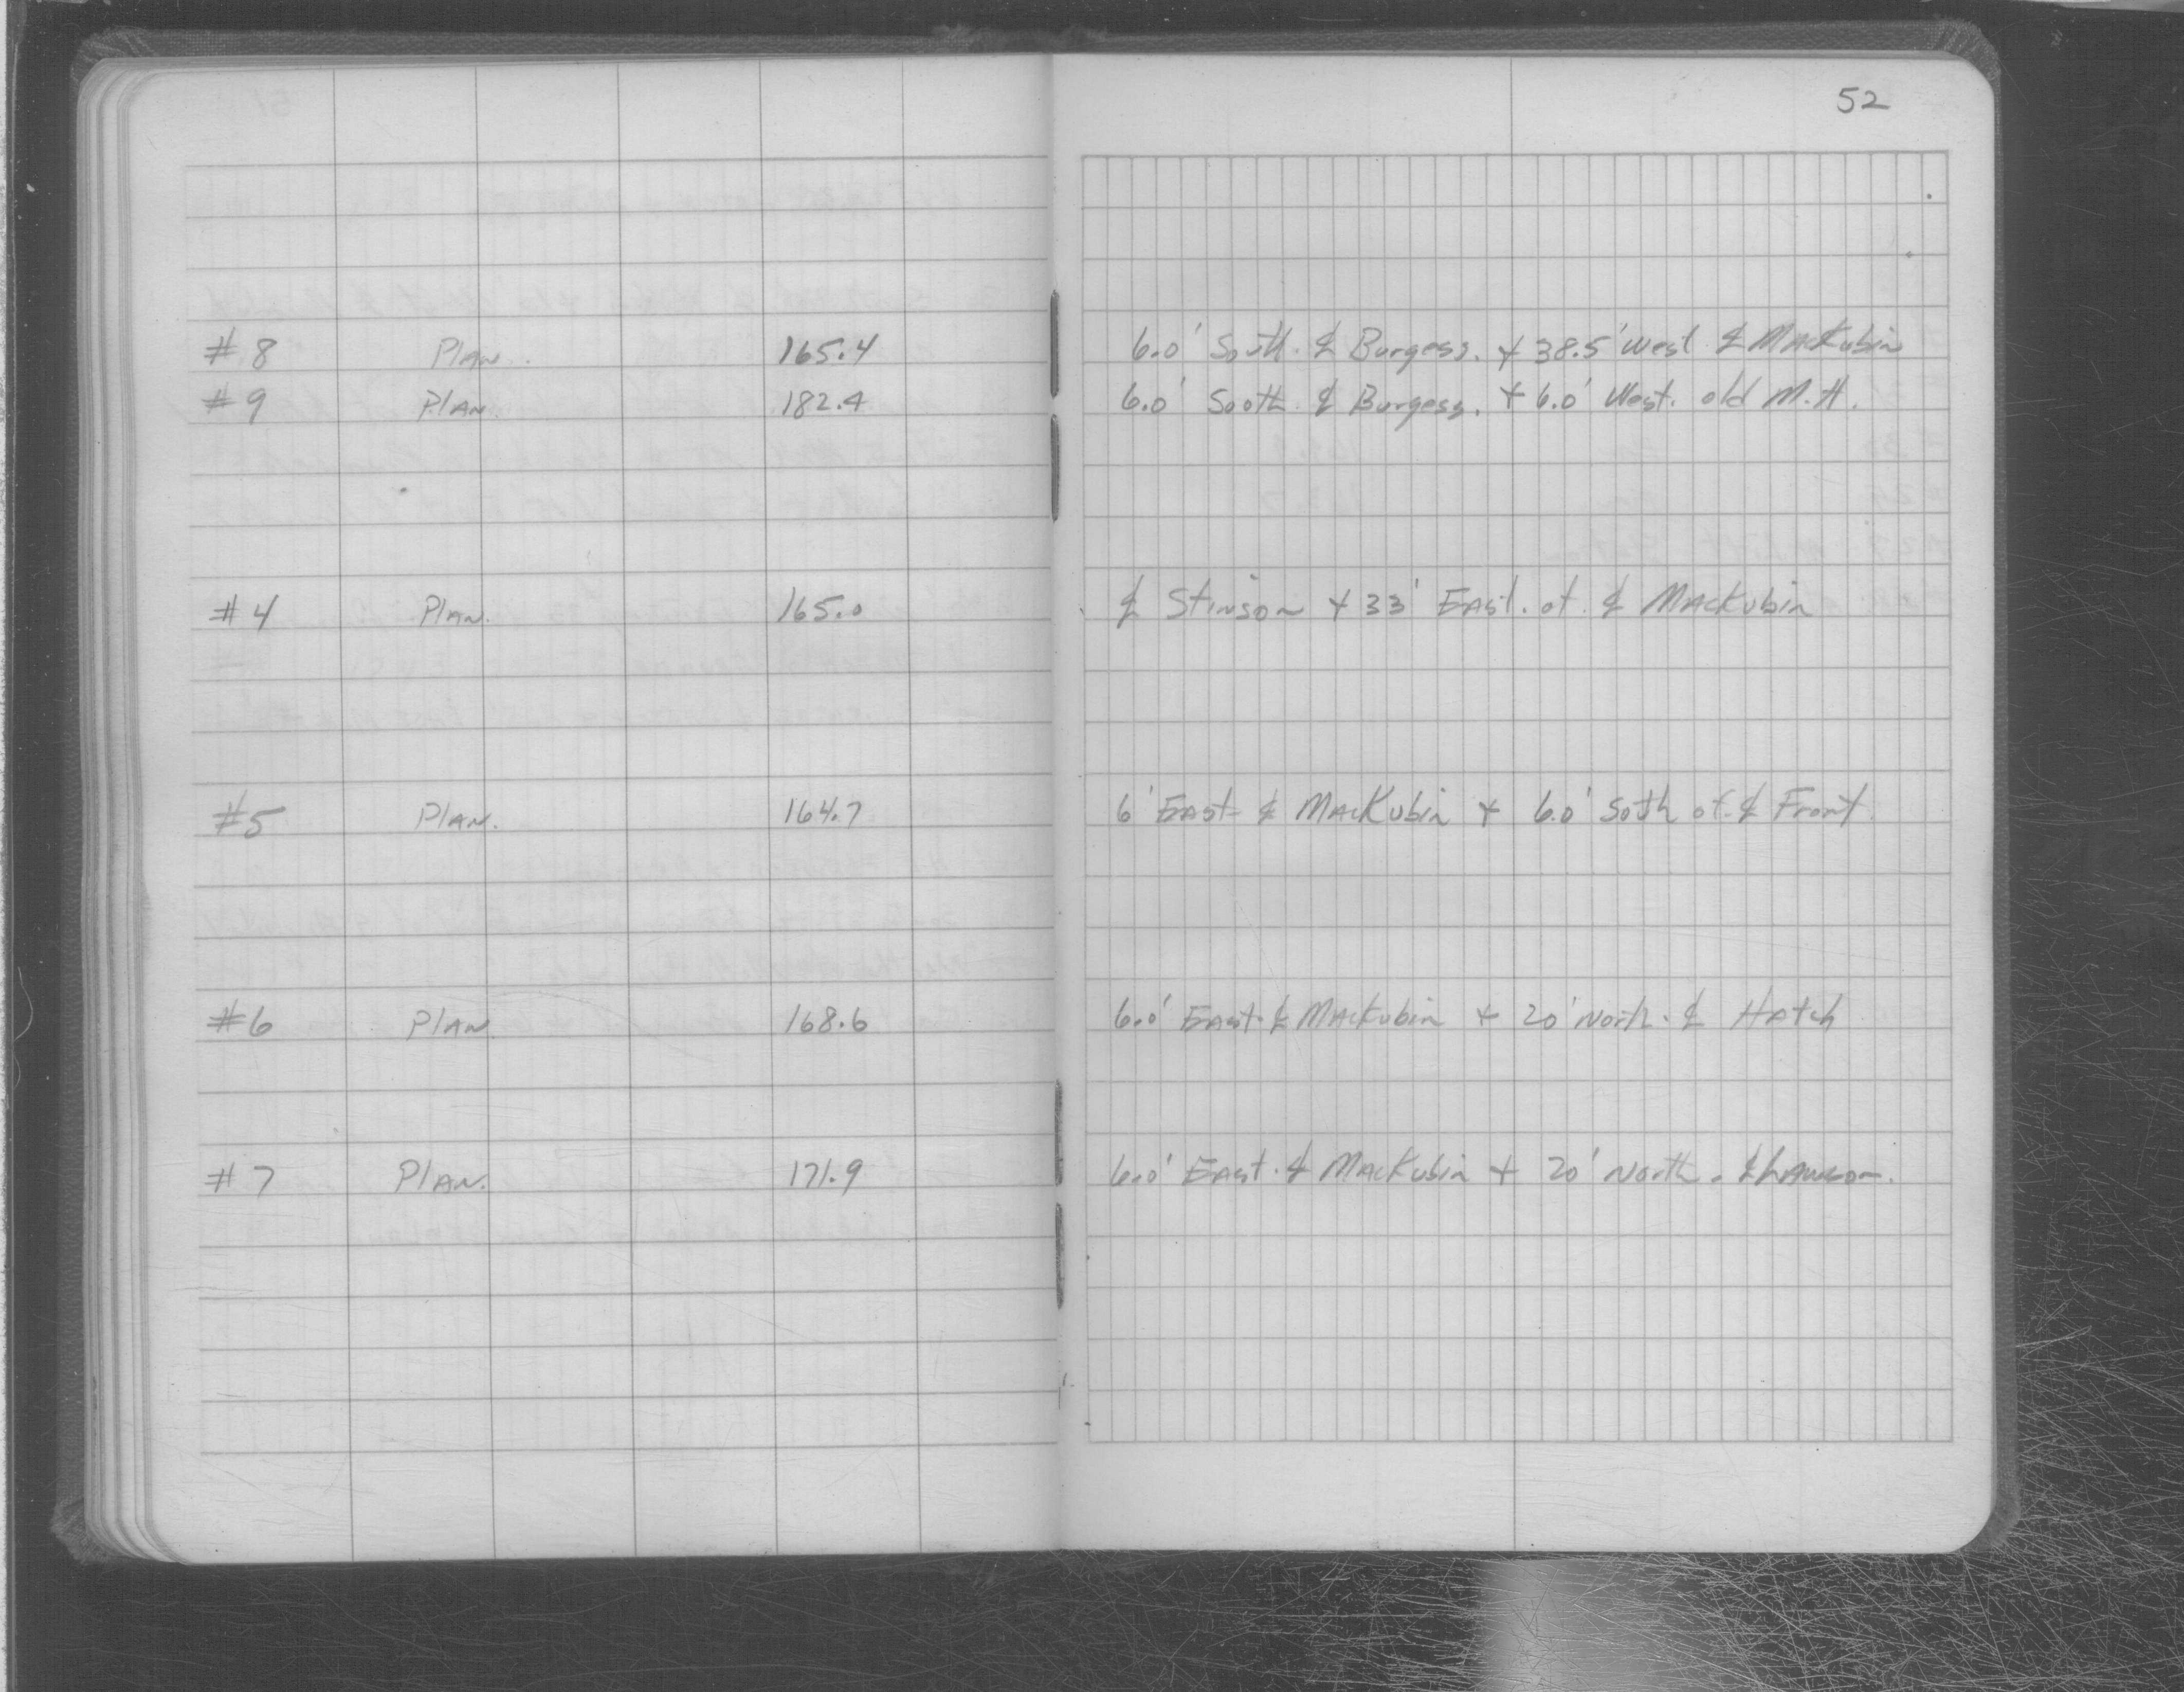 52
#8 Plan. 165.4 6.0' South. ℄ Burgess. + 38.5' West ℄ MacKubin
#9 Plan. 182.4 6.0' South ℄ Burgess. + 6.0' West. old M.H.
#4 Plan. 165.0 ℄ Stinson + 33' East. of. ℄ MacKubin
#5 Plan. 164.7 6' East ℄ MacKubin + 6.0' Soth of. ℄ Front.
#6 Plan. 168.6 6.0' East. ℄ MacKubin + 20' North. ℄ Hatch
#7 Plan. 171.9 6.0' East. ℄ MacKubin + 20' North. ℄ Lawson.